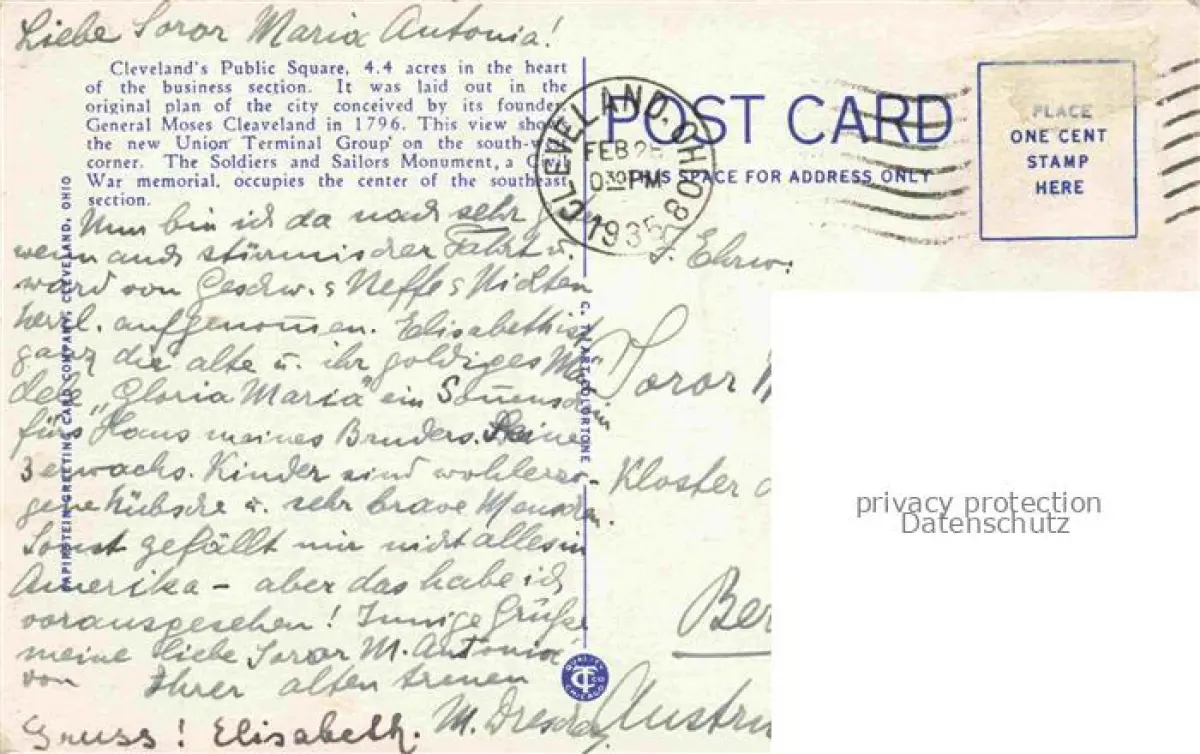 Liebe Soror Maria Antonia!
Cleveland's Public Square, 4.4 acres in the heart
of the business section. It was laid out in the
original plan of the city conceived by its founder
General Moses Cleaveland in 1796. This view shows
the new Union Terminal Group on the south-west
corner. The Soldiers and Sailors Monument, a Civil
War memorial, occupies the center of the southeast
section.
Nun bin ich da nach sehr g
wenn auch stürmischer Fahrt u.
ward von Geschw. s Neffe s Nichten
herzl. aufgenommen. Elisabeth ist
ganz die alte u. ihr goldiges Mä
dele „Gloria Maria" ein Sonnenschein
fürs Haus meines Bruders. Seine
3 erwachs. Kinder sind wohlerzo-
gene hübsche u. sehr brave Menschen.
Sonst gefällt mir nicht alles in
Amerika – aber das habe ich
vorausgesehen! Innige Grüße
meine liebe Soror M. Antonia
von Ihrer alten treuen
M. Drescher
Gruss! Elisabeth.
PAPIRSTEIN GREETING CARD COMPANY, CLEVELAND, OHIO
C. T. ART-COLORTONE
QUALITY
CT CO
CHICAGO
POST CARD
THIS SPACE FOR ADDRESS ONLY
CLEVELAND, OHIO
FEB 25
30 PM
1935
8
PLACE
ONE CENT
STAMP
HERE
I. Ehrw.
Soror
Kloster
Ber
Austri
privacy protection
Datenschutz